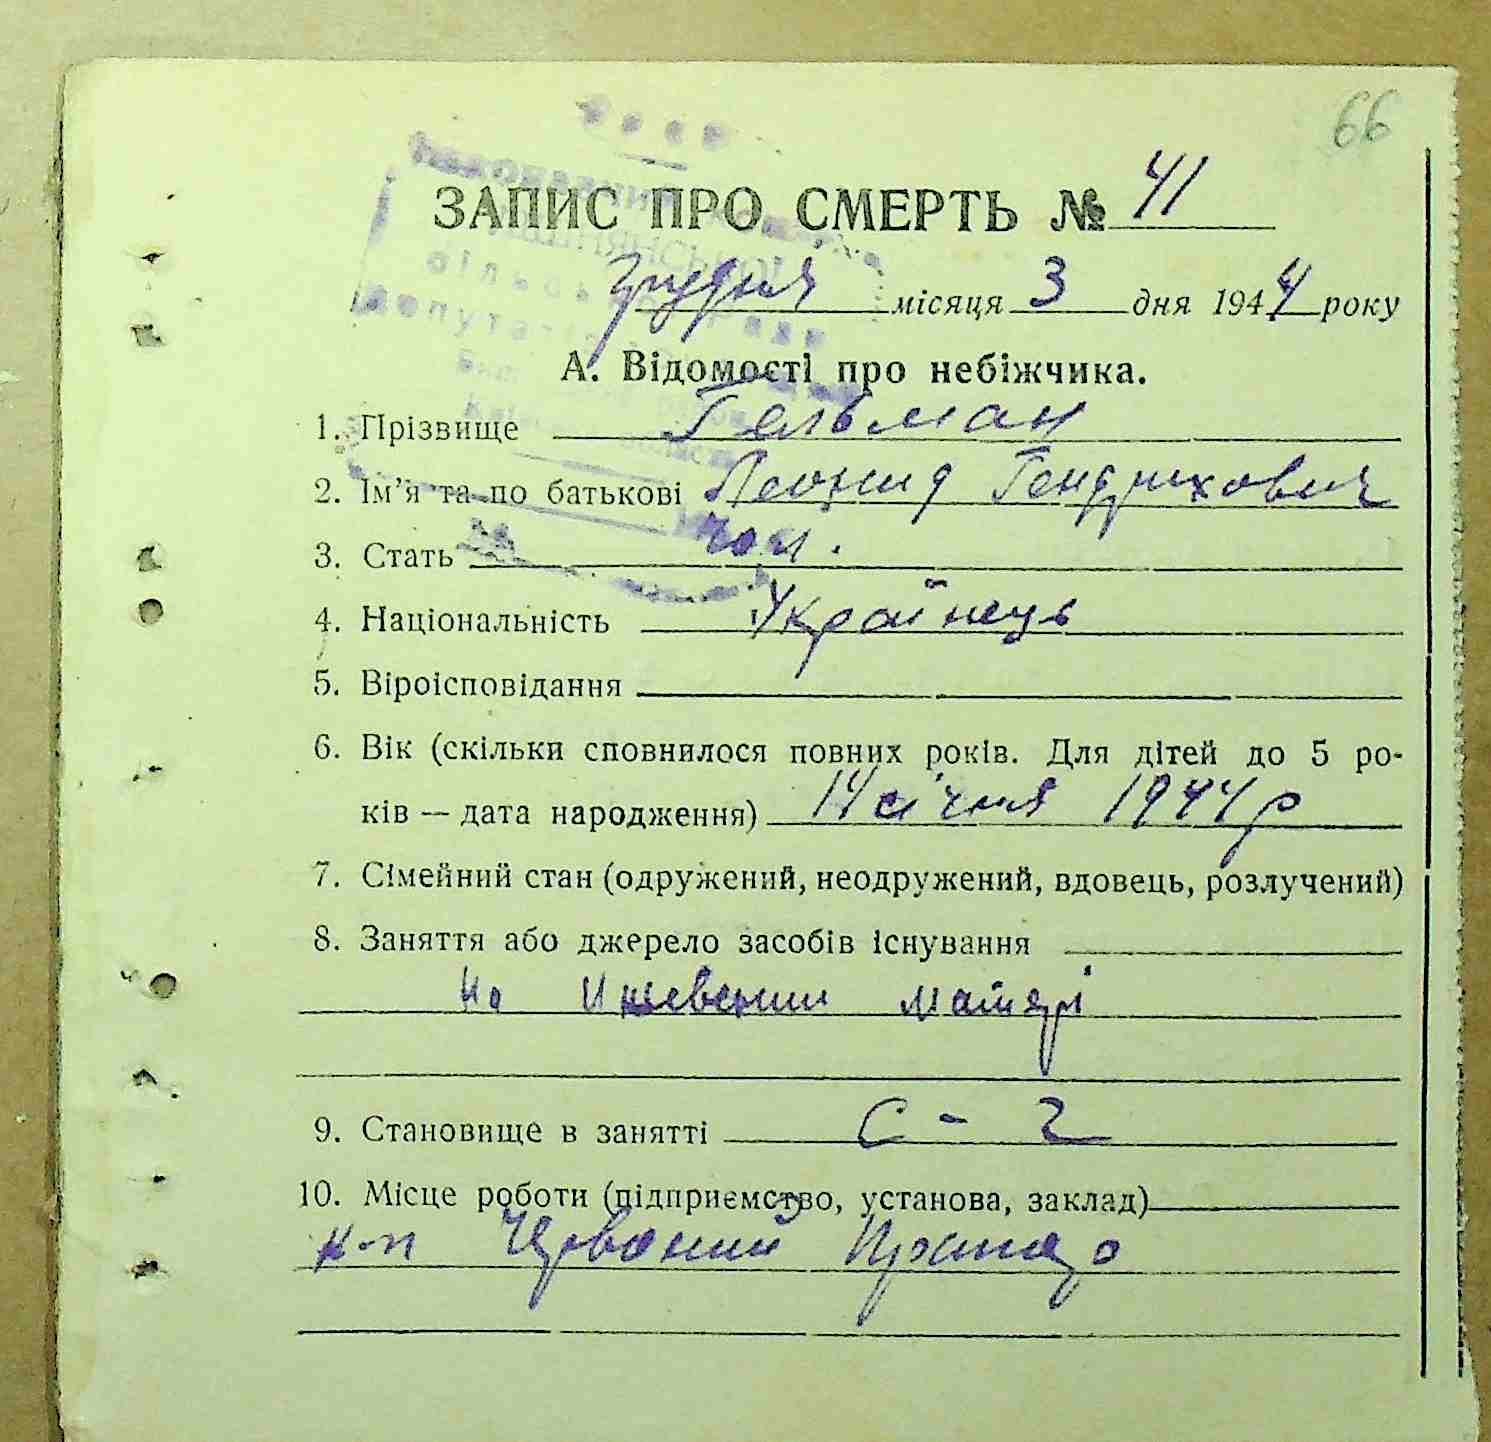 66
ЗАПИС ПРО СМЕРТЬ № 41
Грудня місяця 3 дня 1944 року
А. Відомості про небіжчика.
1. Прізвище Гельман
2. Ім'я та по батькові Леонид Гендрихович
3. Стать чол.
4. Національність Українець
5. Віроісповідання
6. Вік (скільки сповнилося повних років. Для дітей до 5 ро-
ків — дата народження) 14 січня 1944 р
7. Сімейний стан (одружений, неодружений, вдовець, розлучений)
8. Заняття або джерело засобів існування
На матері
9. Становище в занятті С - г
10. Місце роботи (підприємство, установа, заклад)
к-п Червоний